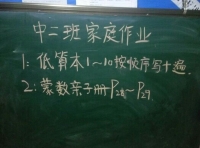 中二班家庭作业
1:低算本1~10按顺序写十遍.
2:蒙数亲子册P28~P29.